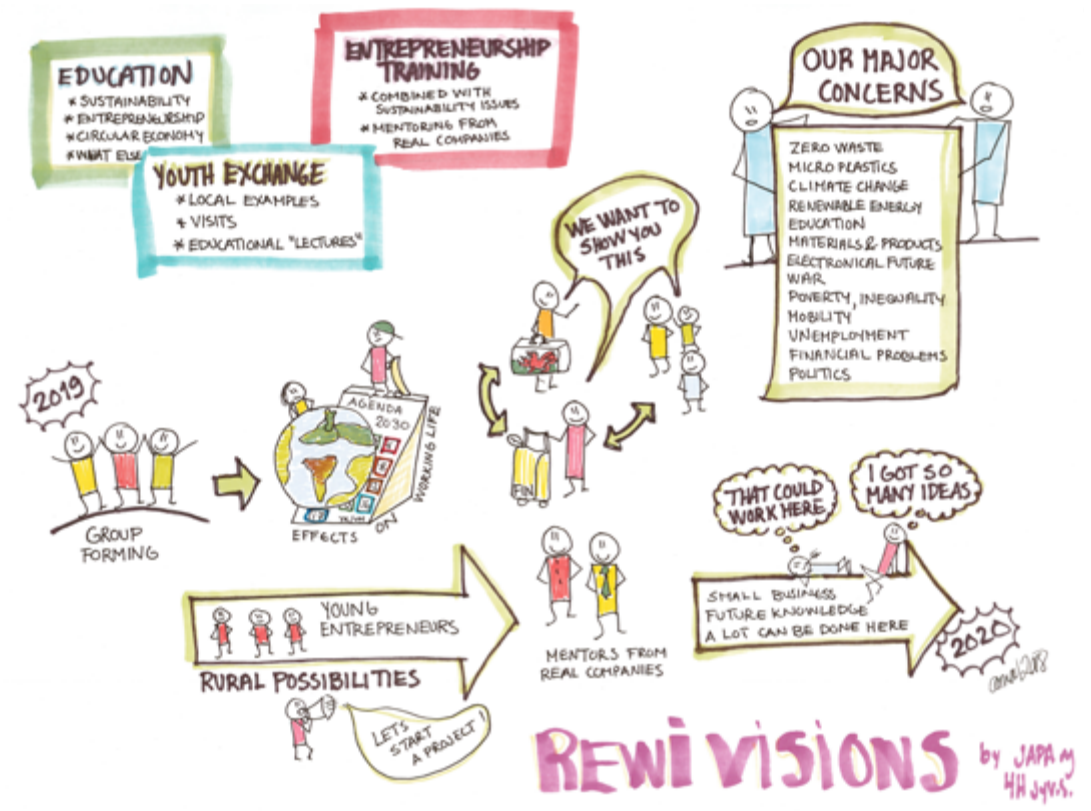 EDUCATION
* SUSTAINABILITY
* ENTREPRENEURSHIP
* CIRCULAR ECONOMY
* WHAT ELSE
ENTREPRENEURSHIP
TRAINING
* COMBINED WITH
SUSTAINABILITY ISSUES
* MENTORING FROM
REAL COMPANIES
YOUTH EXCHANGE
* LOCAL EXAMPLES
* VISITS
* EDUCATIONAL "LECTURES"
OUR MAJOR
CONCERNS
ZERO WASTE
MICRO PLASTICS
CLIMATE CHANGE
RENEWABLE ENERGY
EDUCATION
MATERIALS & PRODUCTS
ELECTRONICAL FUTURE
WAR
POVERTY, INEQUALITY
MOBILITY
UNEMPLOYMENT
FINANCIAL PROBLEMS
POLITICS
WE WANT TO
SHOW YOU
THIS
2019
GROUP
FORMING
AGENDA
2030
EFFECTS
ON
WORKING LIFE
FIN
THAT COULD
WORK HERE
I GOT SO
MANY IDEAS
YOUNG
ENTREPRENEURS
RURAL POSSIBILITIES
LETS
START
A PROJECT!
MENTORS FROM
REAL COMPANIES
SMALL BUSINESS
FUTURE KNOWLEDGE
A LOT CAN BE DONE HERE
2020
REWI VISIONS
by JAPA ry
4H Jyv.S.